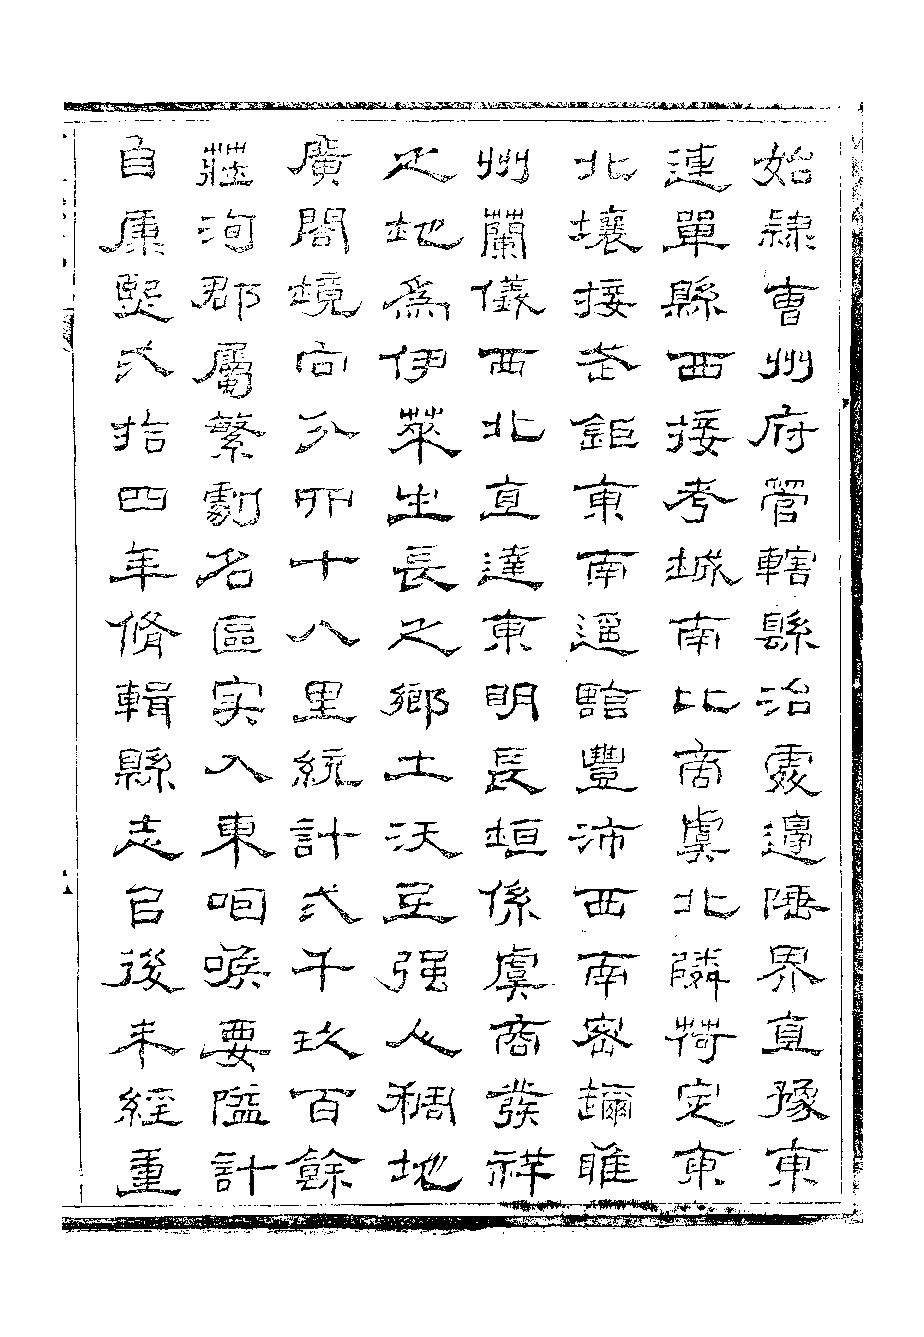 始隷曹州府管轄縣治處邊陲界直豫東
連單縣西接考城南比商虞北隣荷定東
北壤接武鉅東南逼豐沛西南密邇睢
州蘭儀西北直達東明長垣係虞商發祥
之地為伊萊生長之鄉土沃玊强人稠地
廣閤境向分卯十八里統計弍千玖百餘
莊洵郡屬繁劇名區实入東咽喉要隘計
自康熙弍拾四年脩輯縣志已後未經重